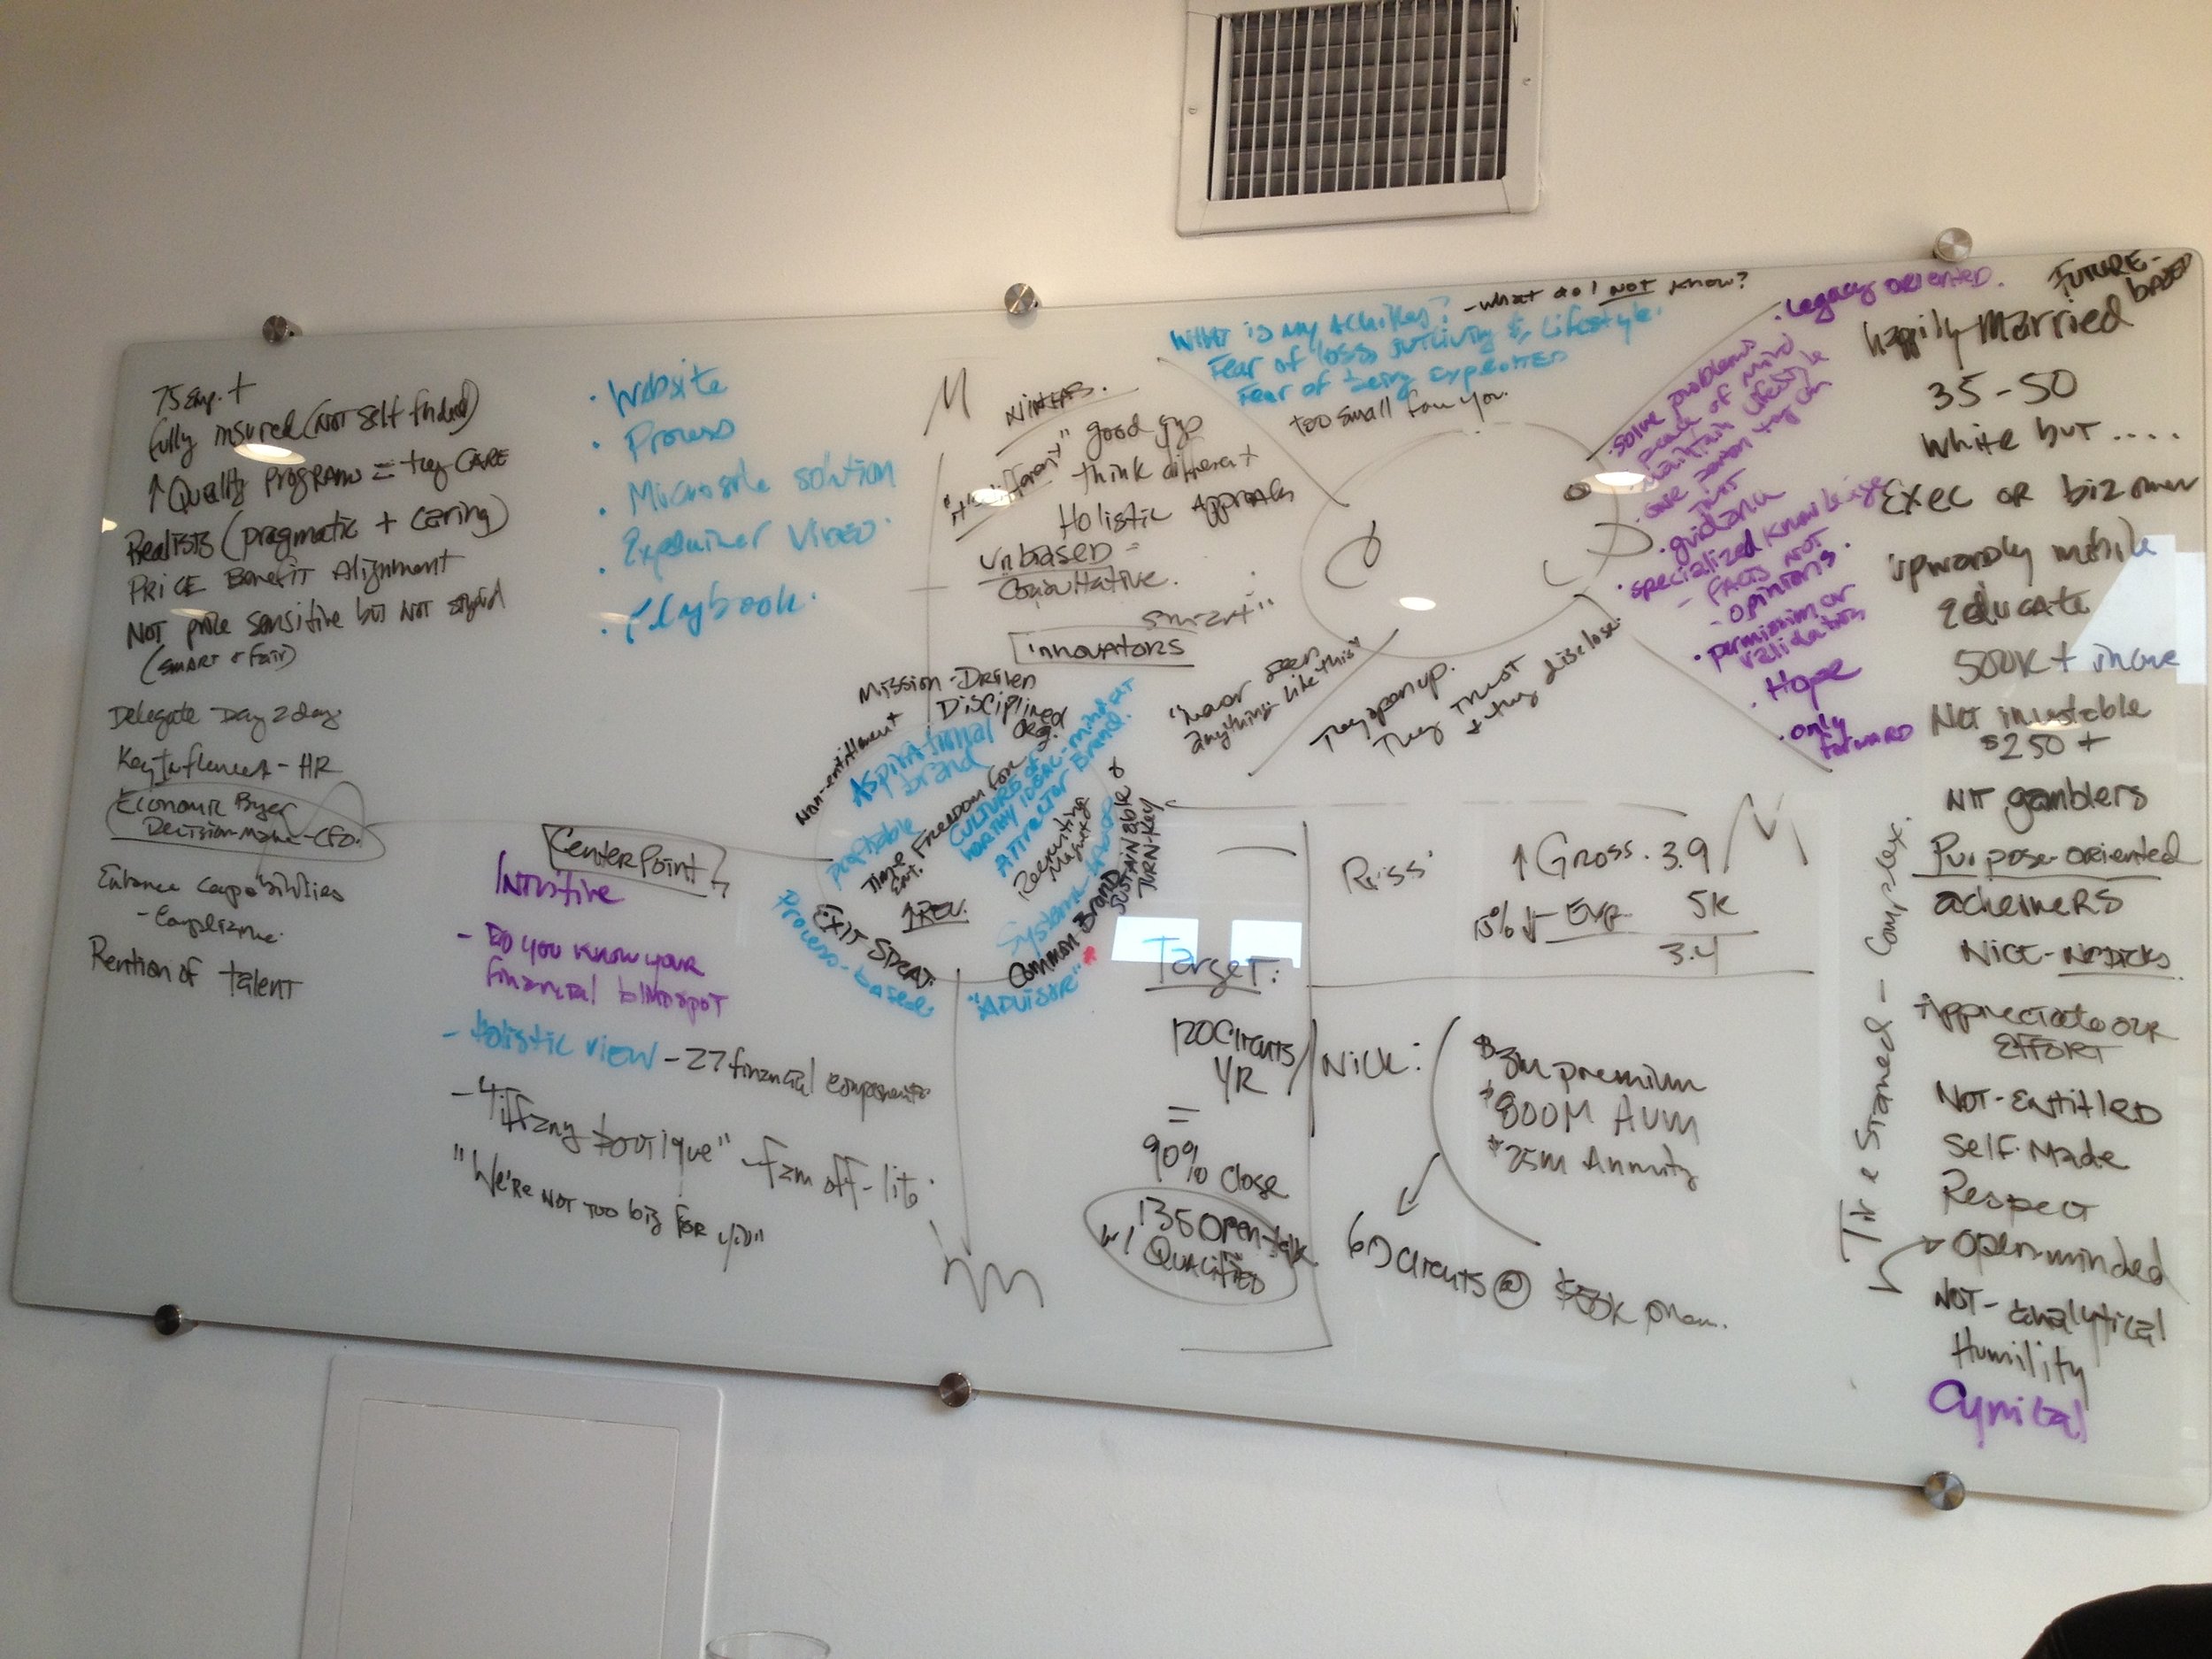 75 Emp. +
fully insured (NOT self funded)
↑ Quality programs = they CARE
Realists (pragmatic + caring)
PRICE Benefit Alignment
NOT price sensitive but NOT stupid
(smart & fair)
Delegate Day 2 day
Key Influencer - HR
Economic Buyer
Decision-Maker - CFO.
Enhance Capabilities
- Compliance
Rention of talent
• Website
• Process
• Microsite solution
• Explainer Video
• Playbook.
CenterPoint
Intuitive
- Do you know your
financial blindspot
- Holistic view - 27 financial components
- "Tiffany boutique" - fam off - lite
"We're NOT TOO big FOR you"
NINJAS.
"different" good guys
think different
Holistic Approach
Unbiased =
Consultative.
smart"
INNOVATORS
"never seen
anything like this"
They open up.
They trust
& they disclose.
What is my Achilles? - what do I NOT know?
Fear of loss, outliving $, Lifestyle.
Fear of being exploited
too small for you.
• Legacy oriented.
• solve problems
peace of mind
maintain lifestyle
trust
• guidance
• specialized knowledge
- FACTS NOT
- opinions.
• permission or
validation
• Hope
• only
forward
Mission-Driven
Disciplined
org.
Non-entitlement
Aspirational
brand
profitable
Time Freedom for
Ent.
Culture of
worthy ideal-mindset
Attractor Brand.
Recruiting
Magnet
Systems-
Sustainable &
Turn-key
↑Rev.
Exit Strat.
Process-based
Common Brand
"Advisor"
Target:
120 Circuits
YR
=
90% Close
135 Open-talk
w/ Qualified
↑ Gross. 3.9
15% ↓ Exp. 5k
3.4
Nick:
$3m premium
$800M AUM
$25m Annuity
60 Circuits @ $50k prem.
Future-
based
happily Married
35-50
white but ....
Exec or biz owner
upwardly mobile
educate
500K + income
Net investable
$250 +
NOT gamblers
Purpose-oriented
acheivers
Nice - No Dicks
Appreciate our
Effort
Not-Entitled
Self-Made
Respect
open-minded
Not-analytical
Humility
Cynical
Time Starved - Complex.